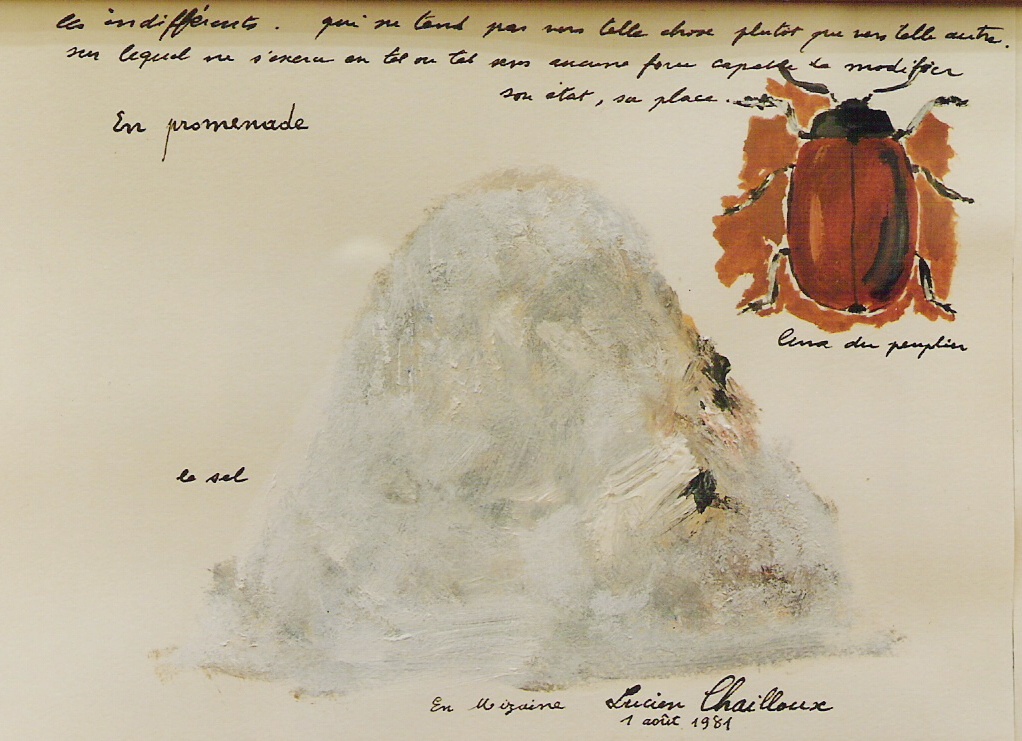 les indifférents. qui ne tend pas vers telle chose plutôt que vers telle autre.
sur lequel ne s'exerce en tel ou tel sens aucune force capable de modifier
son état, sa place.
En promenade
du peuplier
le sel
En Mizaine Lucien Chailloux
1 août 1981